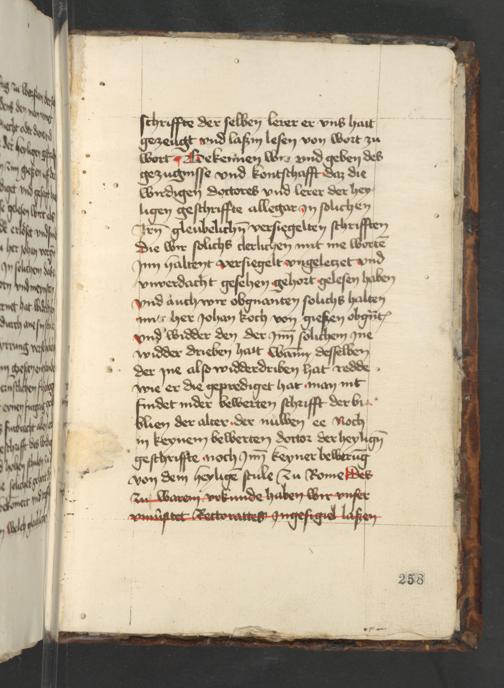 schriffte der selben lerer er vns hatt
gezeugt vnd laßm lesen von wort zu
wort Bekennen wir vnd geben des
gezugnisse vnd kontschafft daz die
wirdigen doctores vnd lerer der hey
ligen geschriffte allegar in solichen
Irn gleubelichn versiegelten schrifften
die wir solichs clerlichen mit me worte
Inn haltent versiegelt vngeletzet vnd
vnuerdacht gesehen gehort gelesen haben
vnd auch wir obgnanten solichs halten
mit her Johan koch von gießen obgnt
vnd widder den der Im solichem Ine
widder drieben hatt wann desselben
der Ine also widderdriben hat redde
wie er die geprediget hat man nit
findet inder bewerten schrifft der bi
blien der alter der nuwen ee Noch
in keynem bewerten doctor der heyligen
geschriffte noch Im keyner bewerug
von dem heylige stule Zu Rome Des
Zu warem vrkunde haben wir vnser
Rectorattes Ingesigiel laßen
258